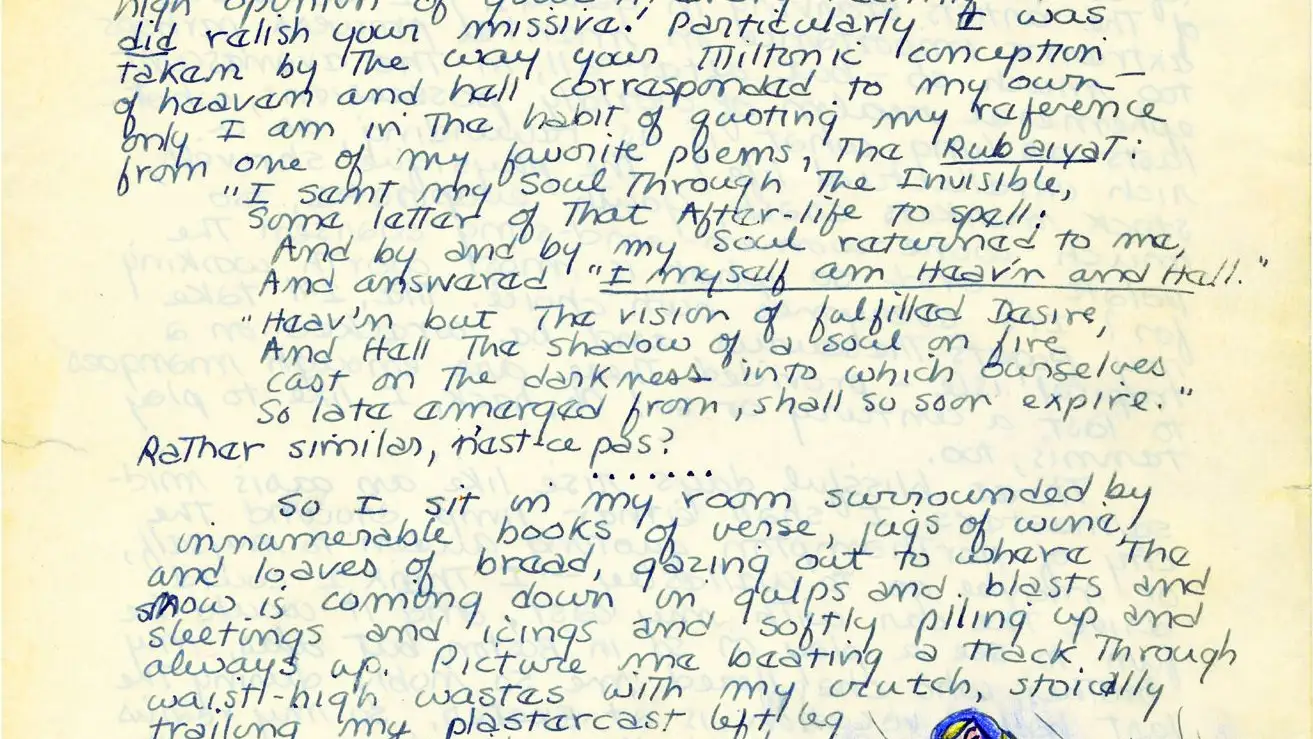 high opinion of
did relish your missive! Particularly I was
taken by the way your Miltonic conception
of heaven and hell corresponded to my own —
only I am in the habit of quoting my reference
from one of my favorite poems, The Rubaiyat:
"I sent my Soul Through The Invisible,
Some letter of That After-life to spell:
And by and by my Soul returned to me,
And answered "I myself am Heav'n and Hell."
"Heav'n but The vision of fulfilled Desire,
And Hell The shadow of a soul on fire
cast on The darkness into which ourselves
So late emerged from, shall so soon expire."
Rather similar, n'est-ce pas?
.......
So I sit in my room surrounded by
innumerable books of verse, jugs of wine,
and loaves of bread, gazing out to where The
snow is coming down in gulps and blasts and
sleetings and icings and softly piling up and
always up. Picture me beating a track Through
waist-high wastes with my crutch, stoically
trailing my plastercast left leg